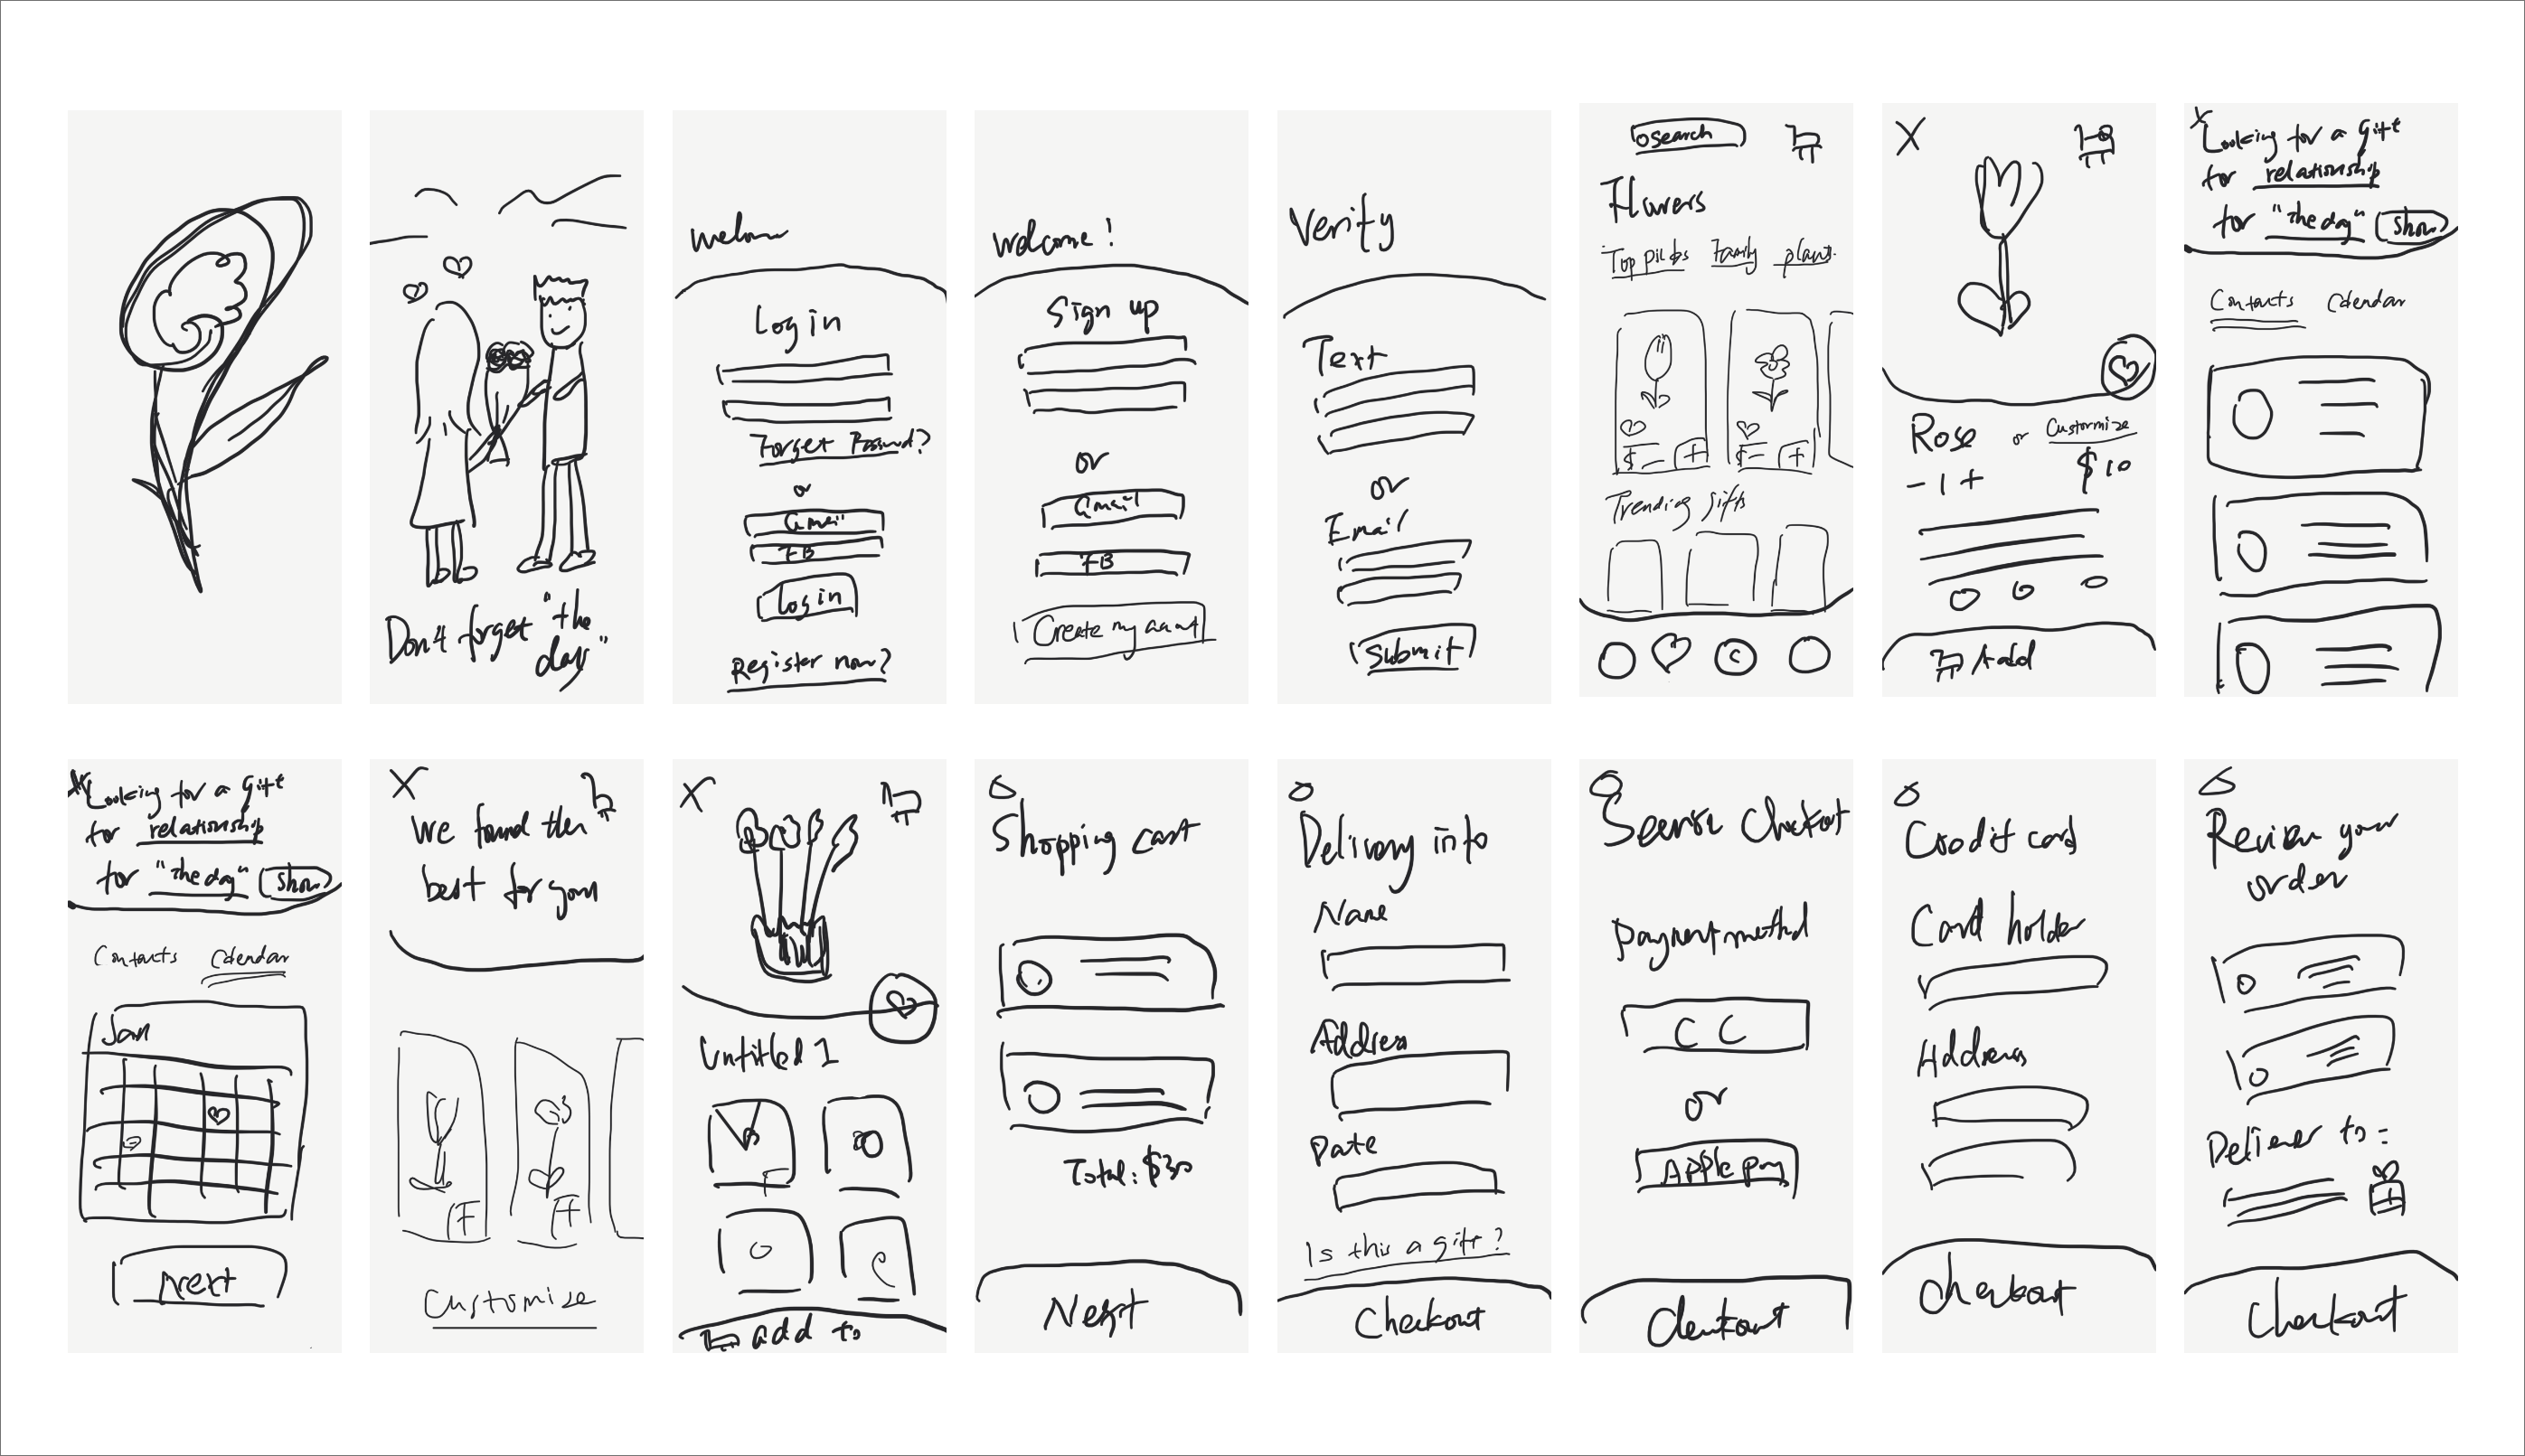 Don't forget "the
day"
welcome
Log in
Forget Password?
or
Gmail
FB
Log in
Register now?
welcome!
Sign up
or
Gmail
FB
Create my account
Verify
Text
or
Email
Submit
search
Flowers
Top picks Family plants
$ +
$ +
Trending gifts
X
Rose or Customize
- 1 + $10
Add
X
Looking for a gift
for relationship
for "the day" show
Contacts Calendar
X
Looking for a gift
for relationship
for "the day" show
Contacts Calendar
Jan
Next
X
We found the
best for you
+ +
Customize
X
Untitled 1
add to
Shopping cart
Total: $30
Next
Delivery info
Name
Address
Date
Is this a gift?
Checkout
Secure Checkout
Payment method
C C
or
Apple pay
Checkout
Credit card
Card holder
Address
Checkout
Review your
order
Deliver to:
Checkout